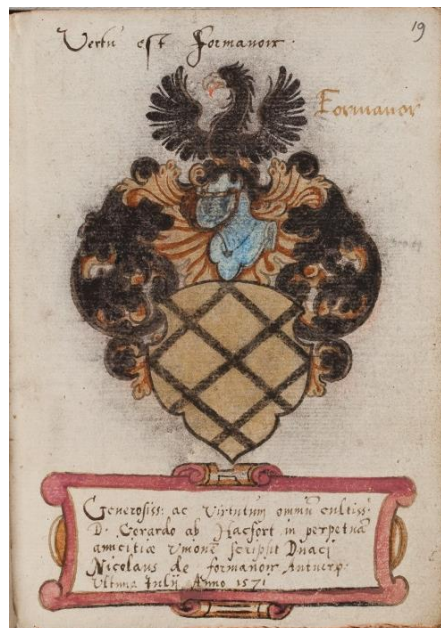 19
Vertu est formanoir.
Formanor
Generosiss: ac Virtutum omniū cultiss:
D. Gerardo ab Hacfort in perpetuā
amicitiæ Vmonē scripsit Duaci
Nicolaus de formanoir Antuerp:
Vltima Iulij Anno 1571